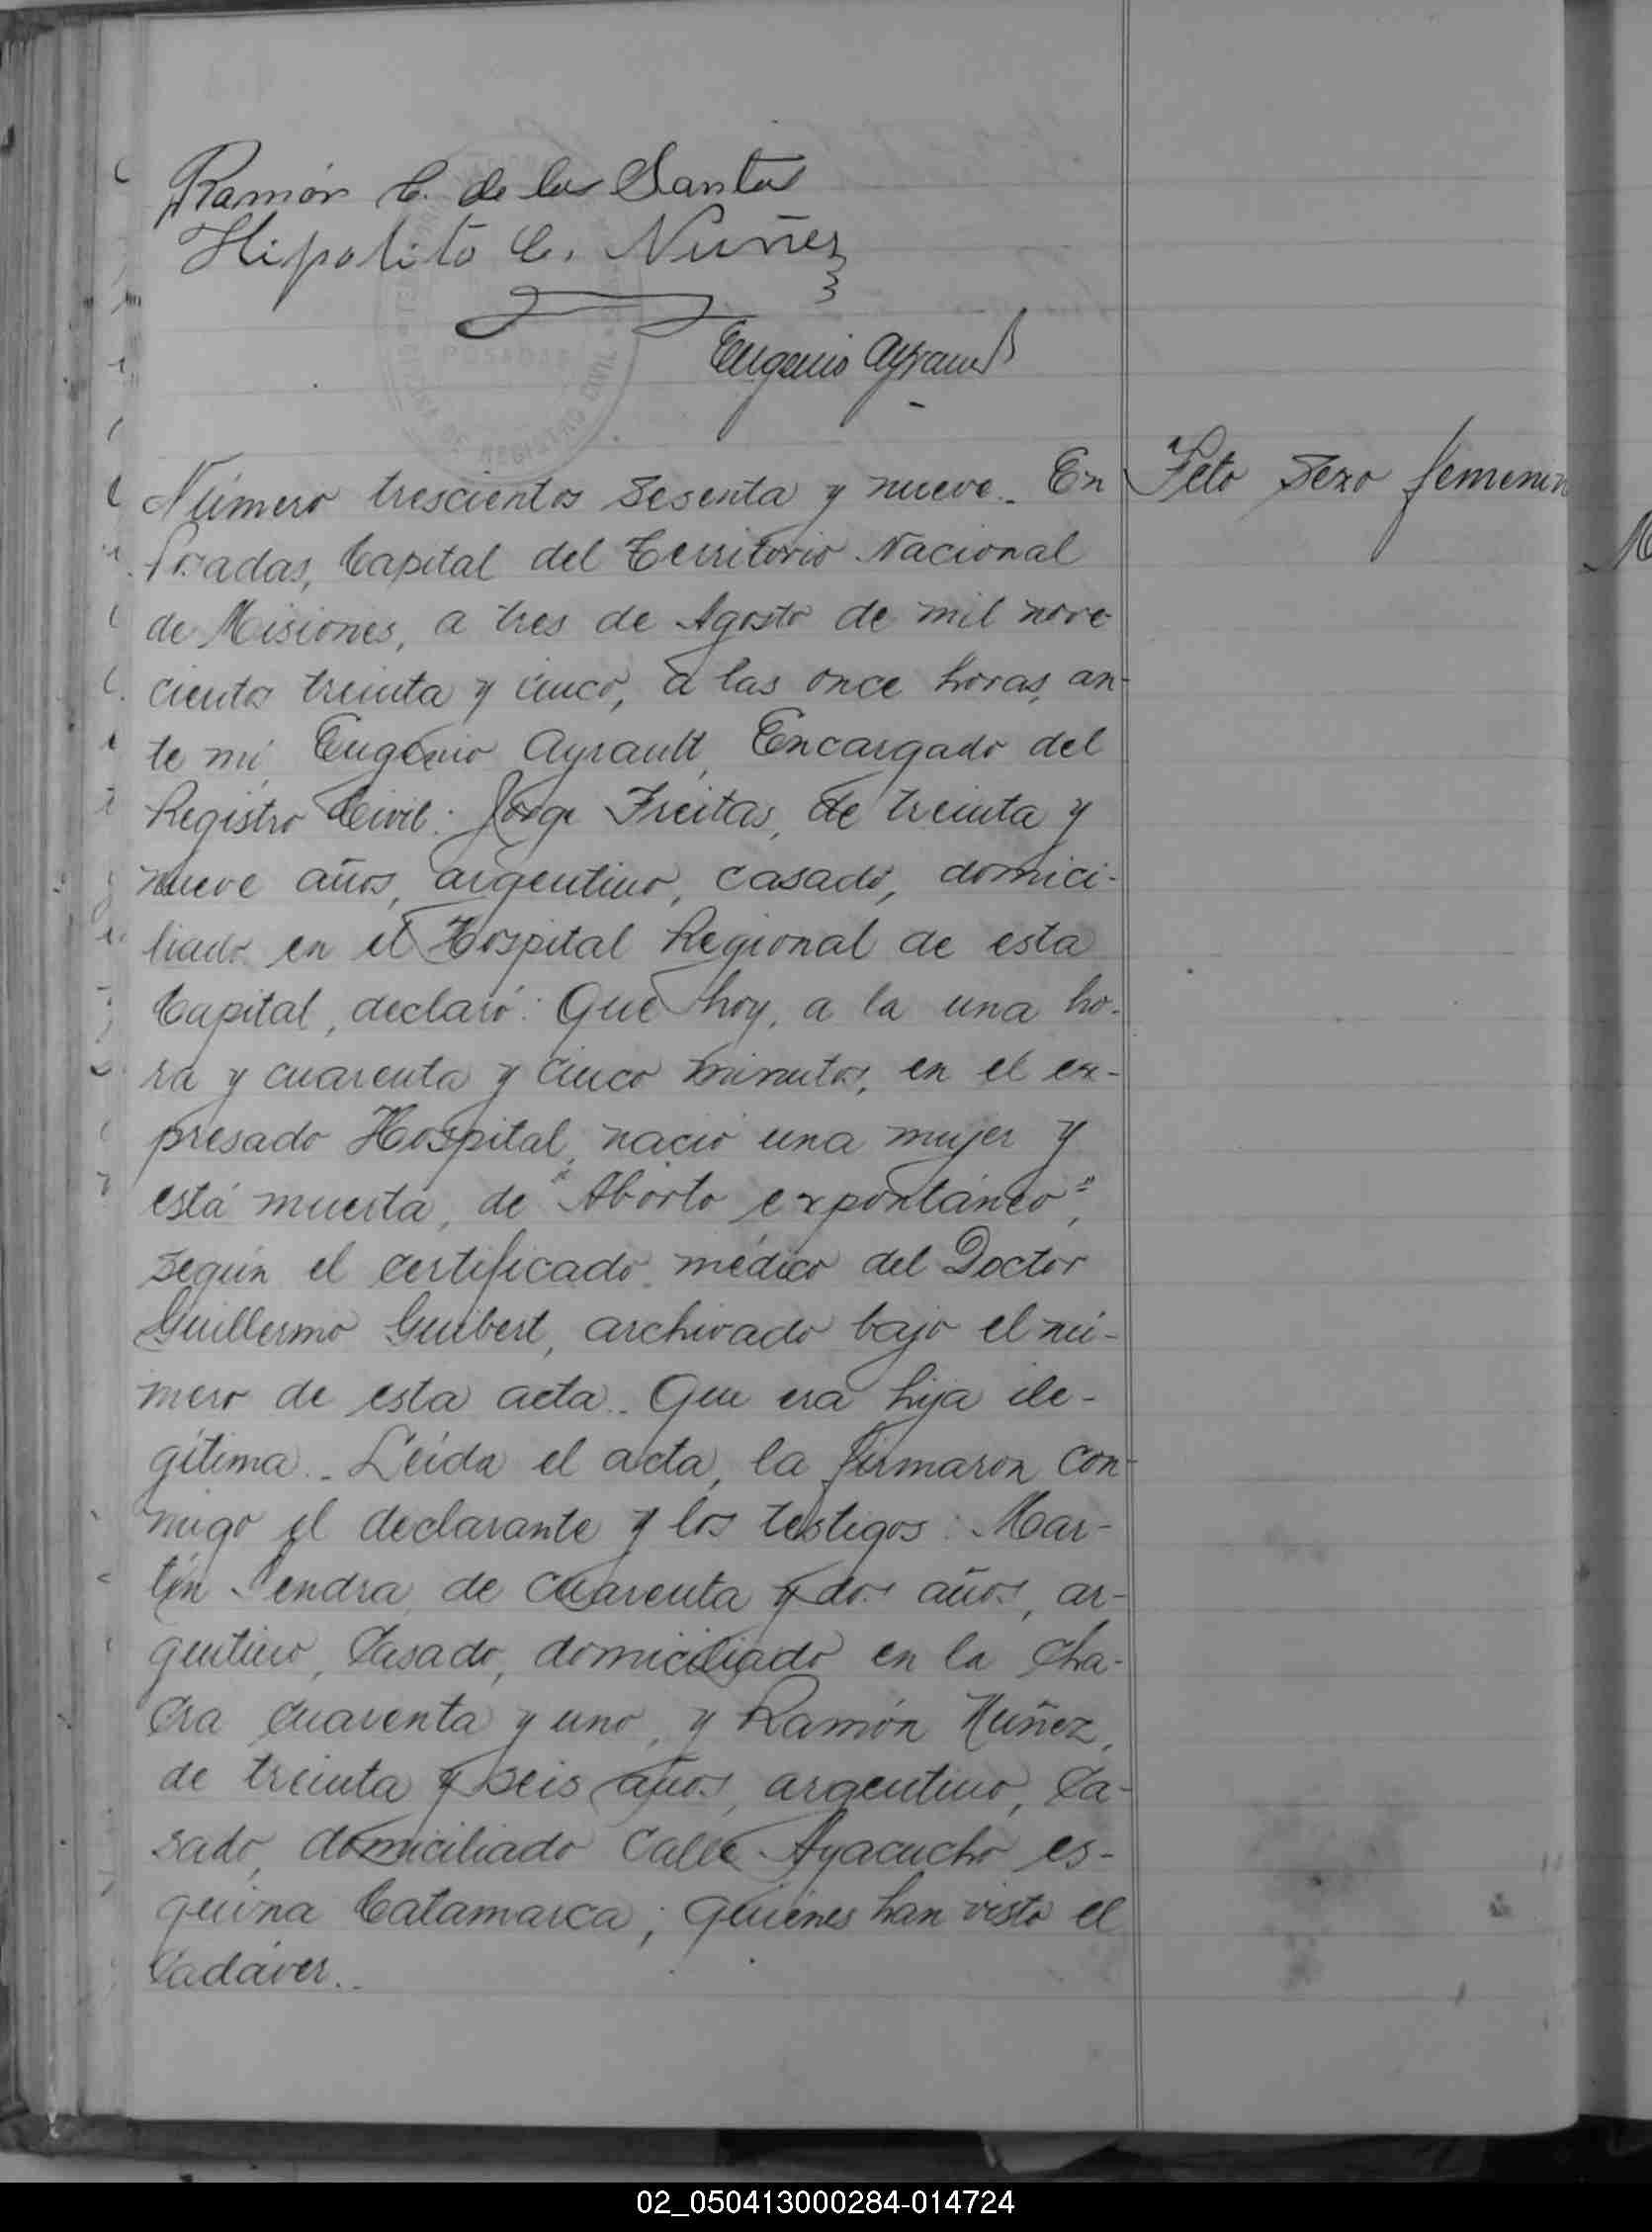 Ramón C. de los Santos
Hipolito C. Nuñez
POSADAS
DE REGISTRO CIVIL
Eugenio Ayrault
Número trescientos sesenta y nueve._ En
Feto sexo femenin
Posadas, Capital del Territorio Nacional
de Misiones, a tres de Agosto de mil nove-
cientos treinta y cinco, a las once horas, an-
te mi, Eugenio Ayrault, Encargado del
Registro Civil: Jorge Freitas, de treinta y
nueve años, argentino, casado, domici-
liado en el Hospital Regional de esta
Capital, declaró: Que hoy, a la una ho-
ra y cuarenta y cinco minutos, en el ex-
presado Hospital, nació una mujer y
está muerta, de "Aborto expontáneo",
según el certificado médico del Doctor
Guillermo Guibert, archivado bajo el nú-
mero de esta acta._ Que era hija ile-
gítima._ Leída el acta, la firmaron con-
migo el declarante y los testigos: Mar-
tín Sendra, de cuarenta y dos años, ar-
gentino, casado, domiciliado en la cha-
cra cuarenta y uno, y Ramón Núñez,
de treinta y seis años, argentino, ca-
sado, domiciliado calle Ayacucho es-
quina Catamarca; quienes han visto el
cadáver._
02_050413000284-014724